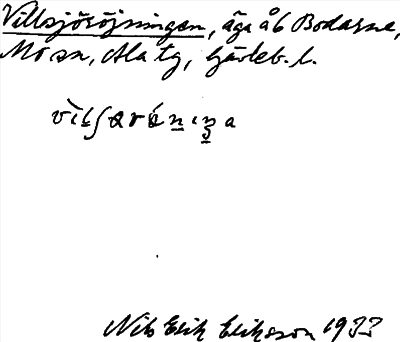 Villsjöröjningen, äga å 6 Bodarne,
Mo sn, Ala tg, Gävleb. l.
Nils Erik Eriksson 1933